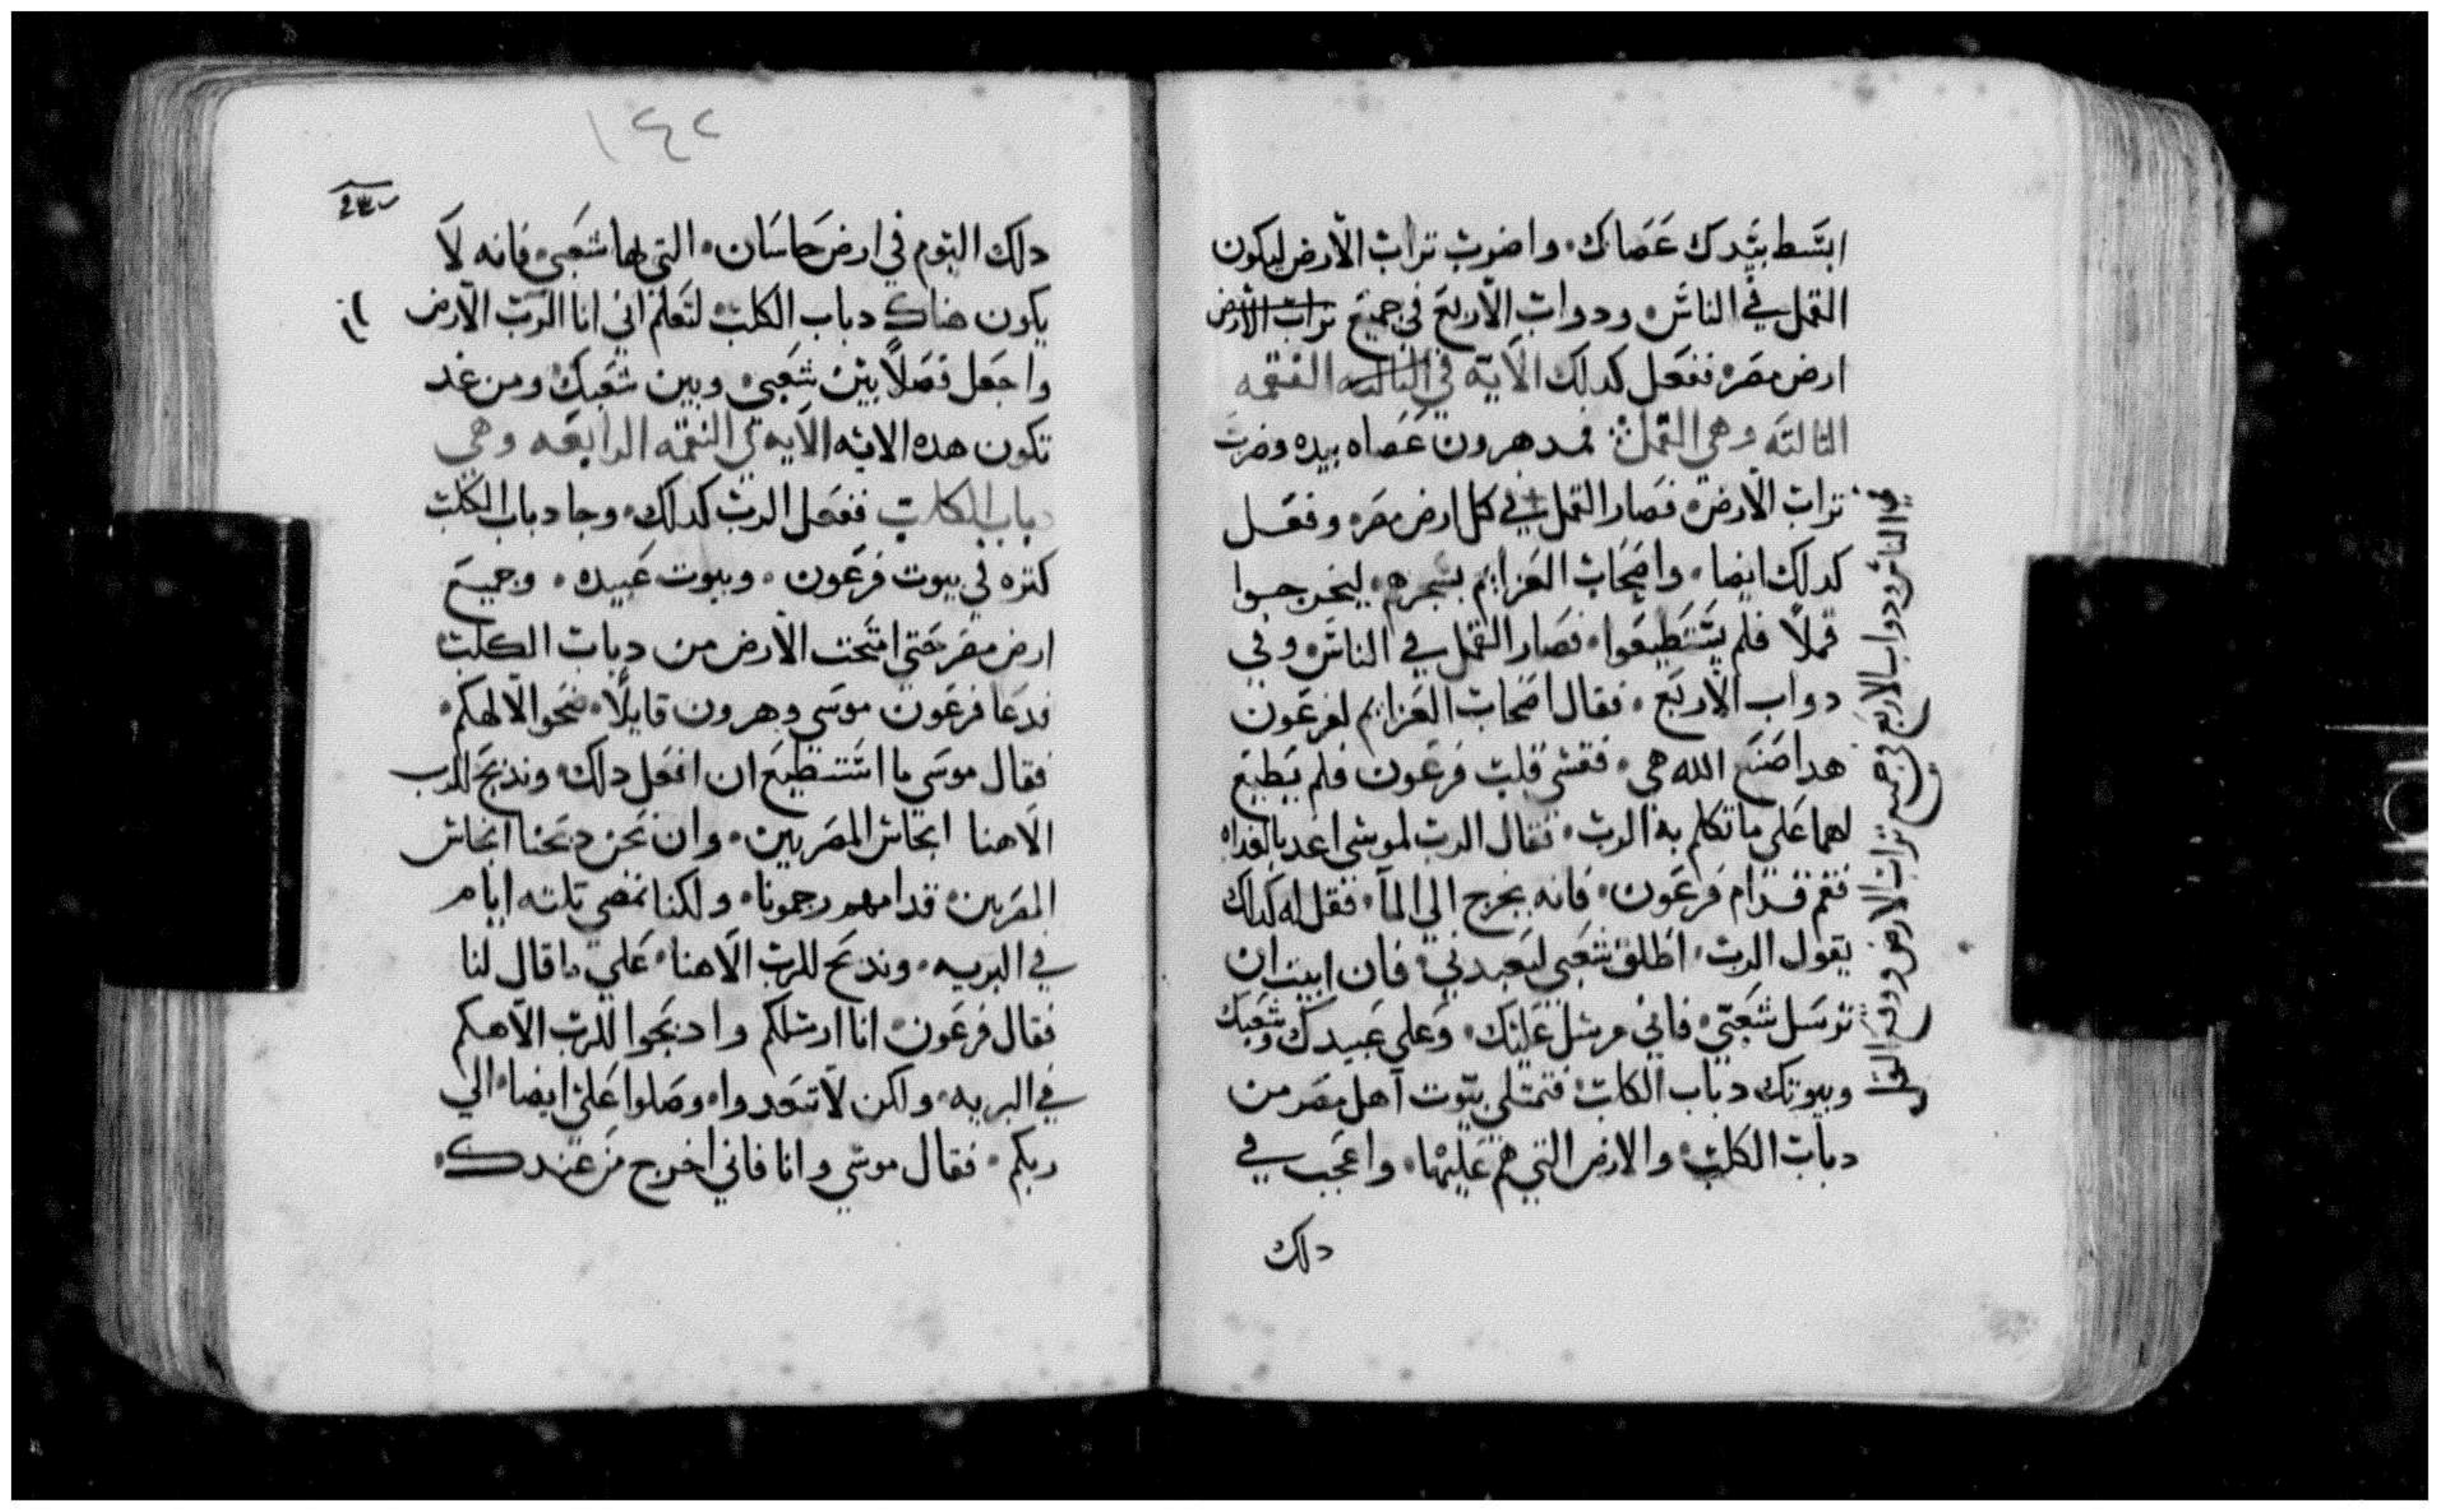 ابسط بيدك عصاك، واضرب تراب الارض ليكون
القمل في الناس، ودواب الاربع في جميع تراب الارض
ارض مصر، ففعل كدلك الاية في التالته النقمه
التالته وهي القمل: فمد هرون عصاه بيده وضرب
تراب الارض، فصار القمل في كل ارض مصر، وفعل
كدلك ايضا، واصحاب العزايم بسحرهم، ليخرجوا
قملاً فلم يستطيعوا، فصار القمل في الناس، وفي
دواب الاربع، فقال اصحاب العزايم لفرعون
هدا صنع الله هي، فقسي قلب فرعون فلم يطيع
لهما علي ما تكلم به الرب، فقال الرب لموسي اعد بالغداه
فقم قدام فرعون، فانه يخرج الي المآ، فقل له كدلك
يقول الرب، اطلق شعبي ليعبدني، فان ابيت ان
ترسل شعبي، فاني مرسل عليك، وعلي عبيدك وشعبك
وبيوتك دباب الكلب، فتمتلي بيوت اهل مصر من
دباب الكلب، والارض التي هم عليها، واعجب في
دلك
في الناس ودواب الاربع في جميع تراب الارض ووقع القمل
١٤٢
دلك اليوم في ارض حاسان، التي لها شعبي، فانه لا
يكون هناك دباب الكلب، لتعلم اني انا الرب الارض
واجعل فصلاً بين شعبي، وبين شعبك، ومن غد
تكون هده الايه الايه في النقمه الرابعه وهي
دباب الكلاب ففعل الرب كدلك، وجا دباب الكلب
كتره في بيوت فرعون، وبيوت عبيده، وجميع
ارض مصر حتي امتحت الارض من دباب الكلب
فدعا فرعون موسي وهرون قايلاً، ضحوا لالهكم،
فقال موسي ما استطيع ان افعل دلك، وندبح للرب
الاهنا انجاس المصريين، وان نحن دبحنا انجاس
المصريين، قدامهم رجمونا، ولكنا نمضي تلته ايام
في البريه، وندبح للرب الاهنا، علي ما قال لنا
فقال فرعون، انا ارسلكم وادبحوا للرب الاهكم
في البريه، ولكن لا تبعدوا، وصلوا علي ايضا، الي
ربكم، فقال موسي وانا فاني اخرج من عندك،